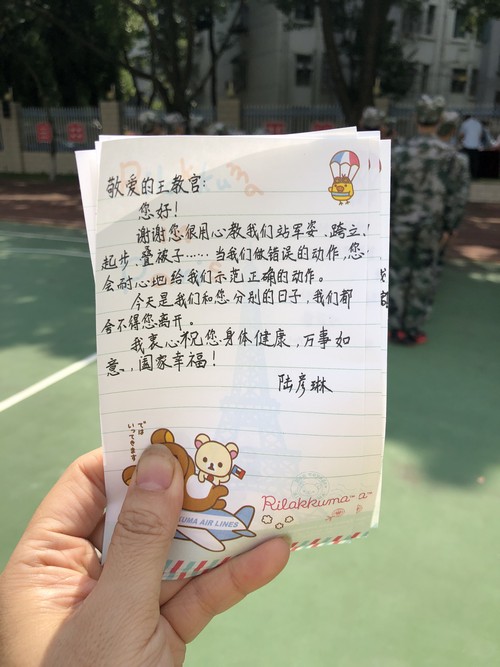 敬爱的王教官：
您好！
谢谢您很用心教我们站军姿、跨立、
起步、叠被子……当我们做错误的动作，您
会耐心地给我们示范正确的动作。
今天是我们和您分别的日子，我们都
舍不得您离开。
我衷心祝您身体健康，万事如
意，国家幸福！
陆彦琳
では
いってきます
Rilakkuma
KUMA AIR LINES